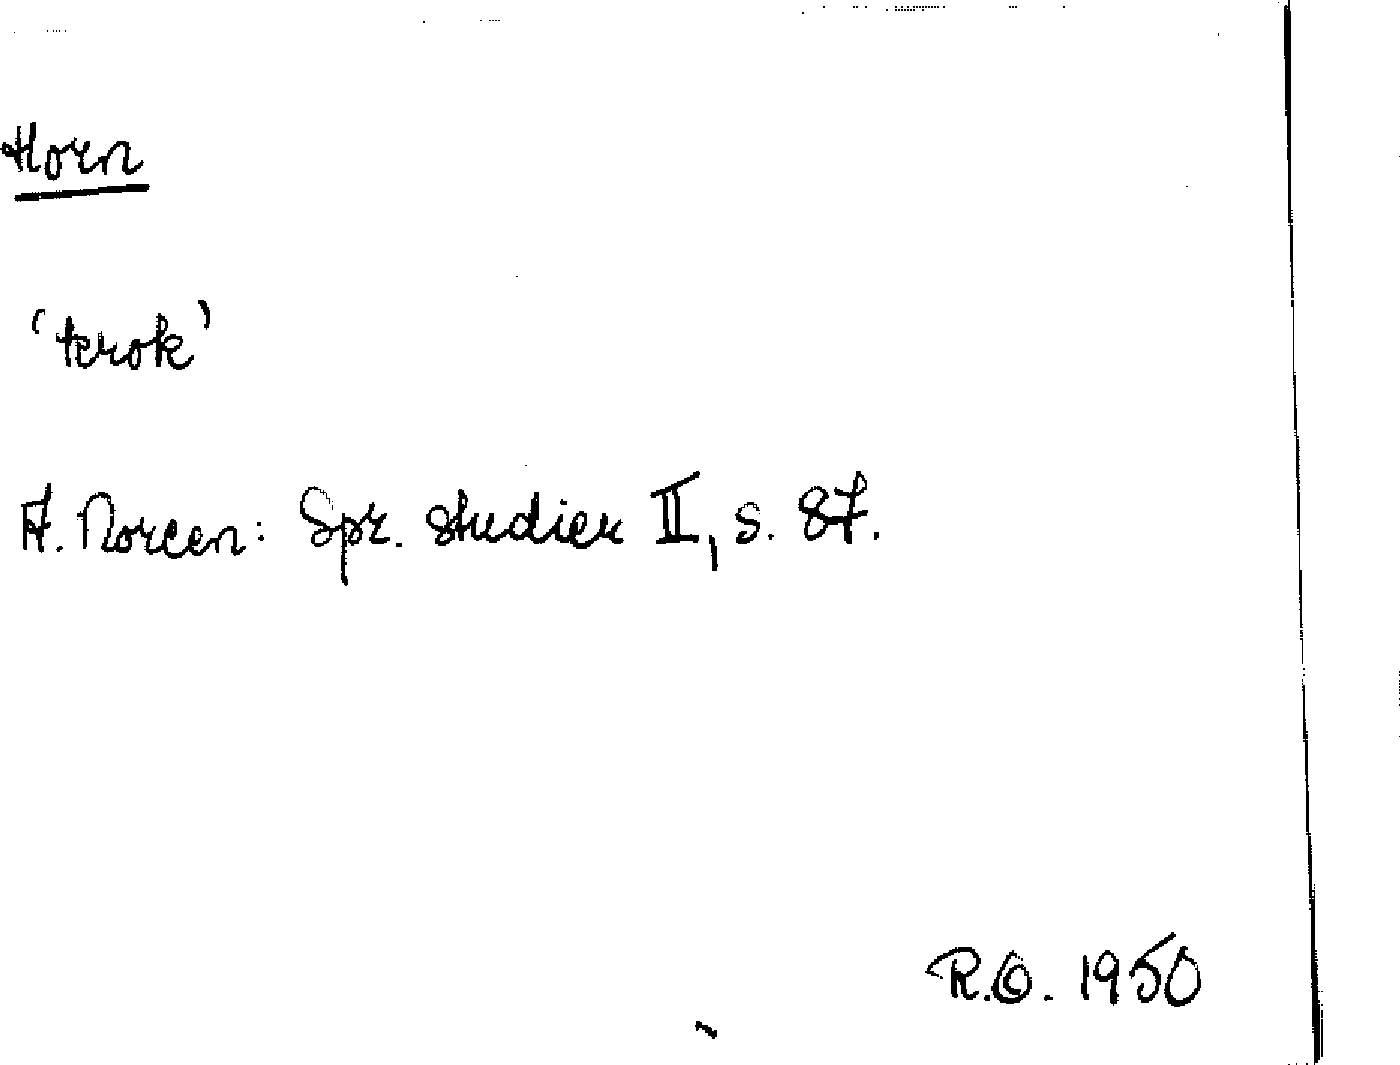 Horn
'krok'
A. Noreen: Spr. studier II, s. 87.
R.O. 1950